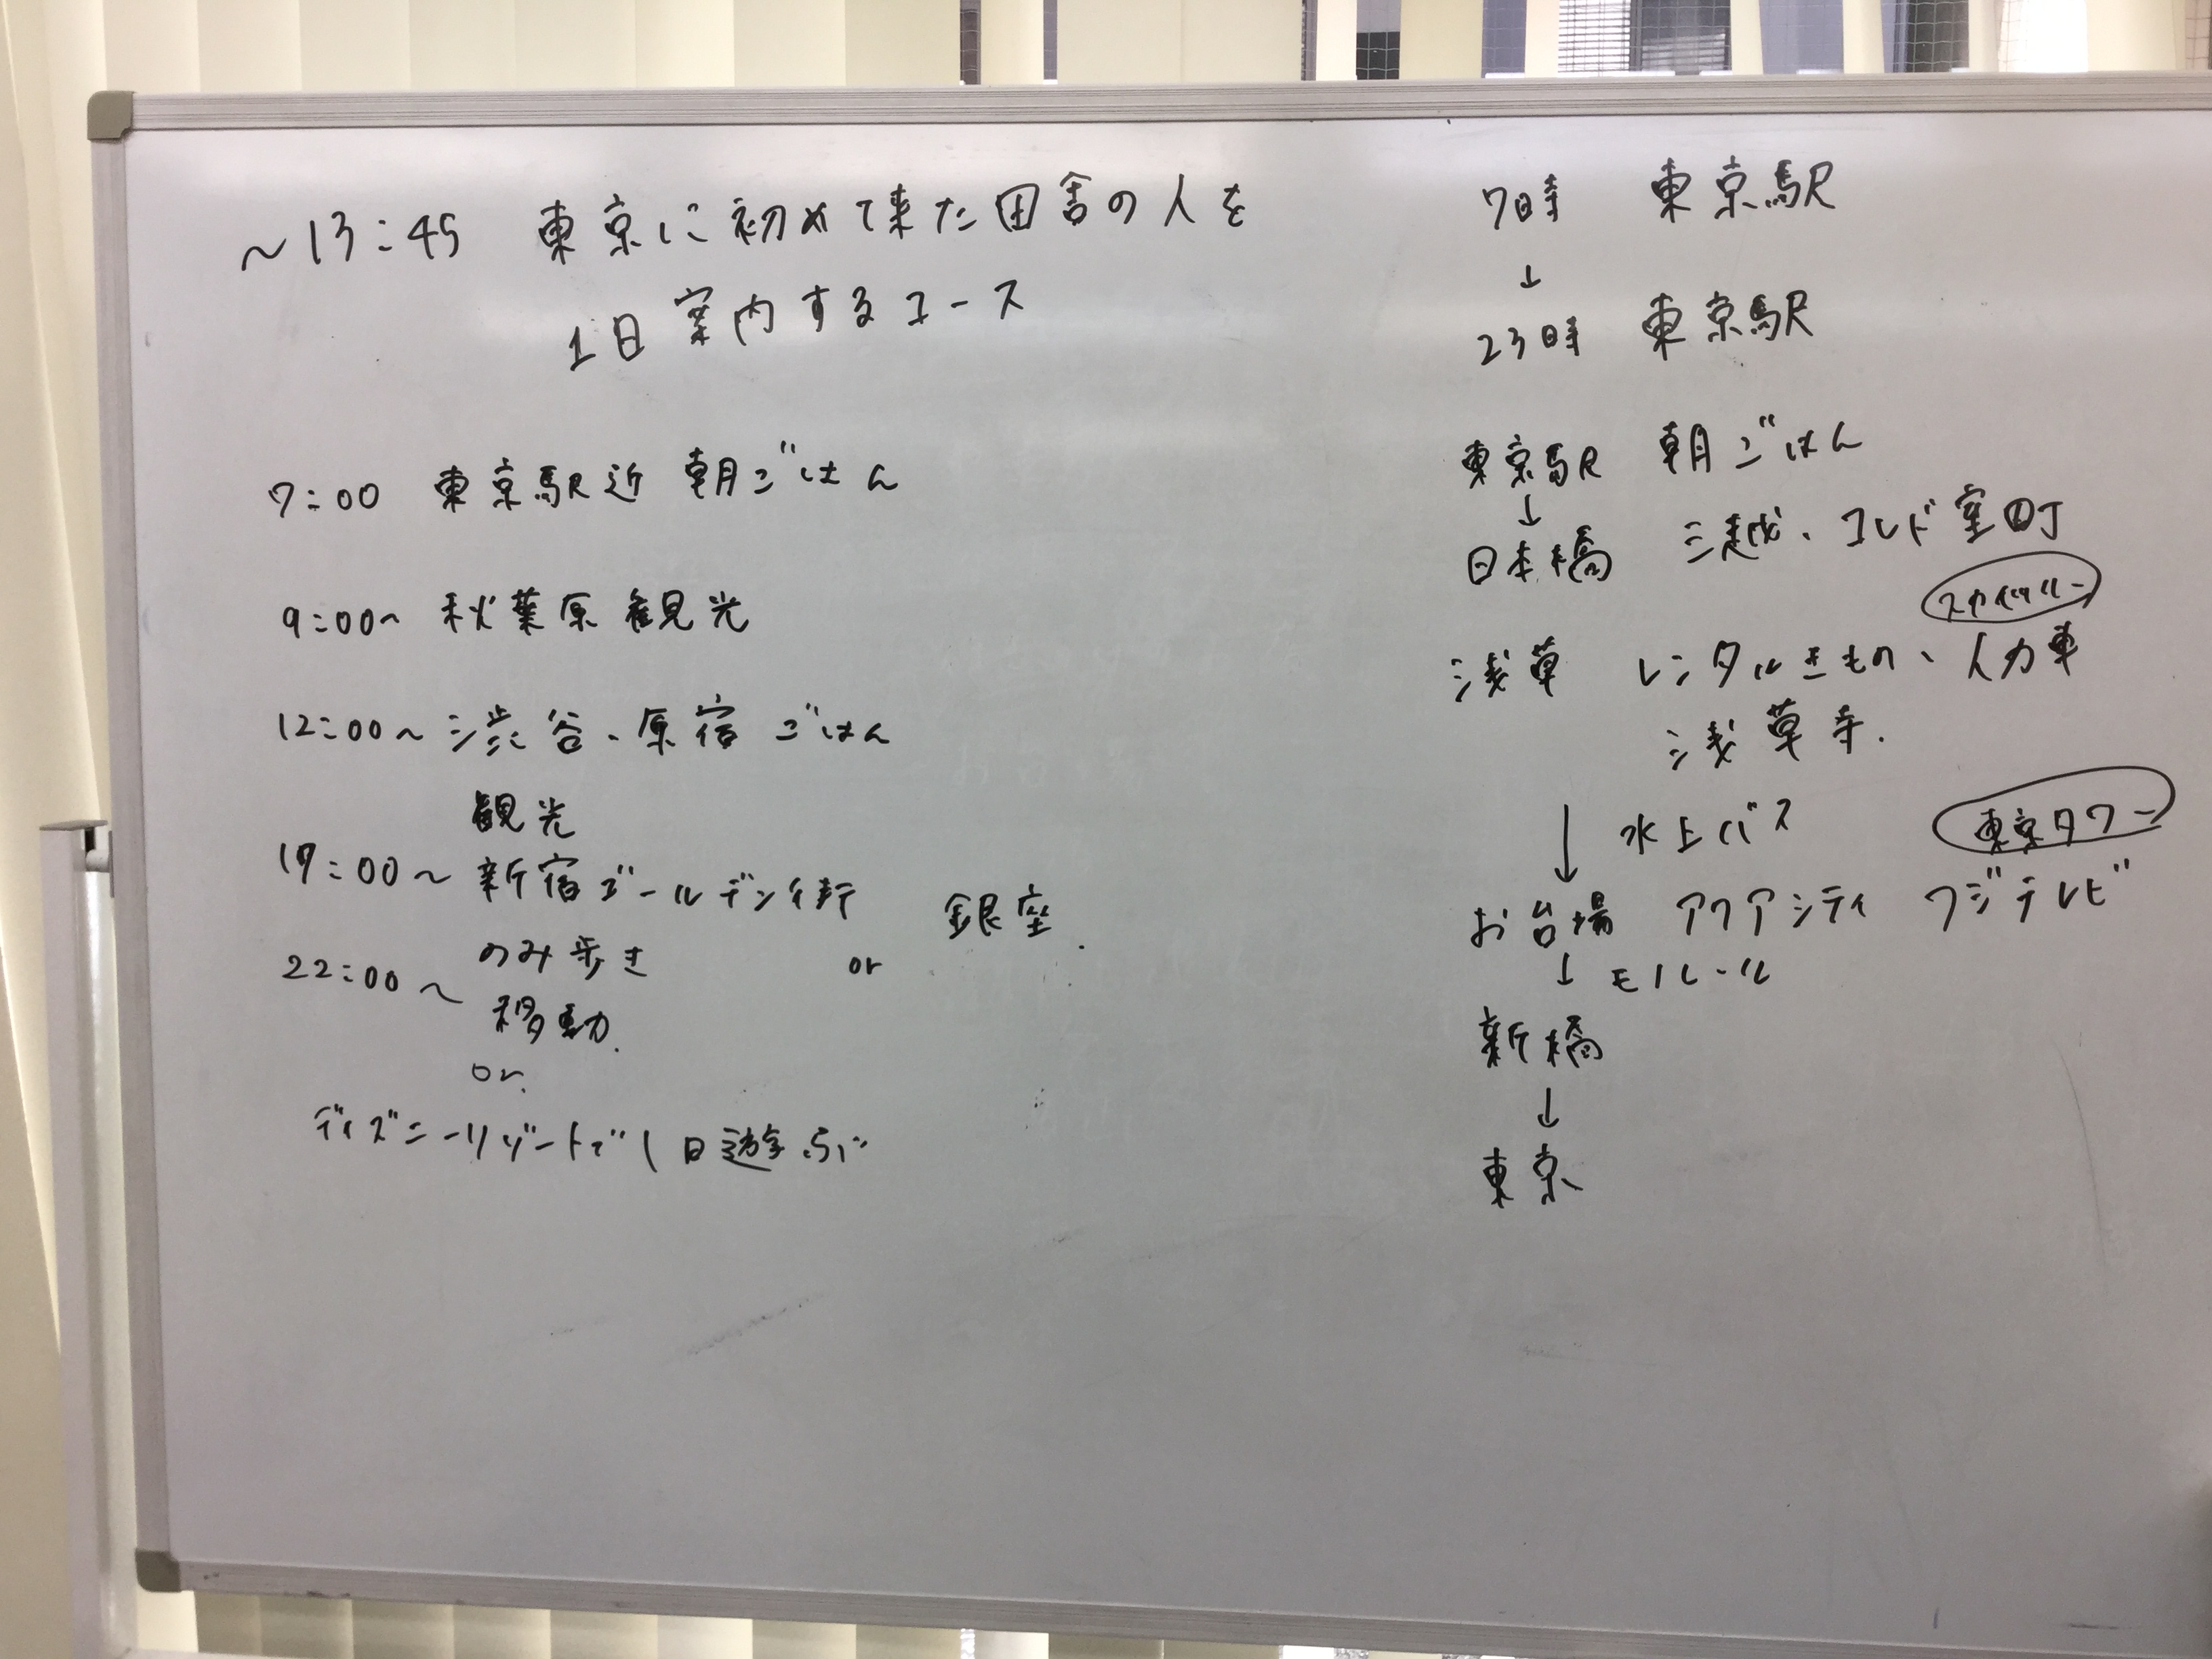 ~13:45 東京に初めて来た田舎の人を
1日案内するコース
7:00 東京駅近 朝ごはん
9:00~ 秋葉原観光
12:00~ 渋谷、原宿 ごはん
観光
19:00~ 新宿ゴールデン街
のみ歩き or 銀座.
22:00~ 移動.
or.
ディズニーリゾートで1日遊ぶ
7時 東京駅
↓
23時 東京駅
東京駅 朝ごはん
↓
日本橋 三越、コレド室町
スカイツリー
浅草 レンタルきもの、人力車
浅草寺.
↓ 水上バス
東京タワー
お台場 アクアシティ フジテレビ
↓ モノレール
新橋
↓
東京